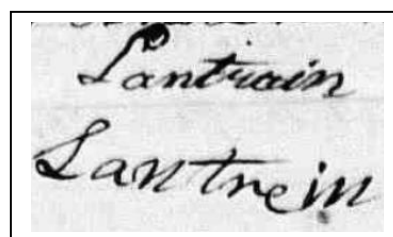 Lantrain
Lantrein